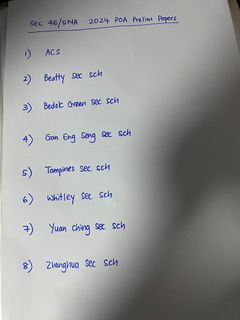 Sec 4E/5NA 2024 POA Prelim Papers
1) ACS
2) Beatty Sec Sch
3) Bedok Green Sec Sch
4) Gan Eng Seng Sec Sch
5) Tampines Sec Sch
6) Whitley Sec Sch
7) Yuan Ching Sec Sch
8) Zhonghua Sec Sch